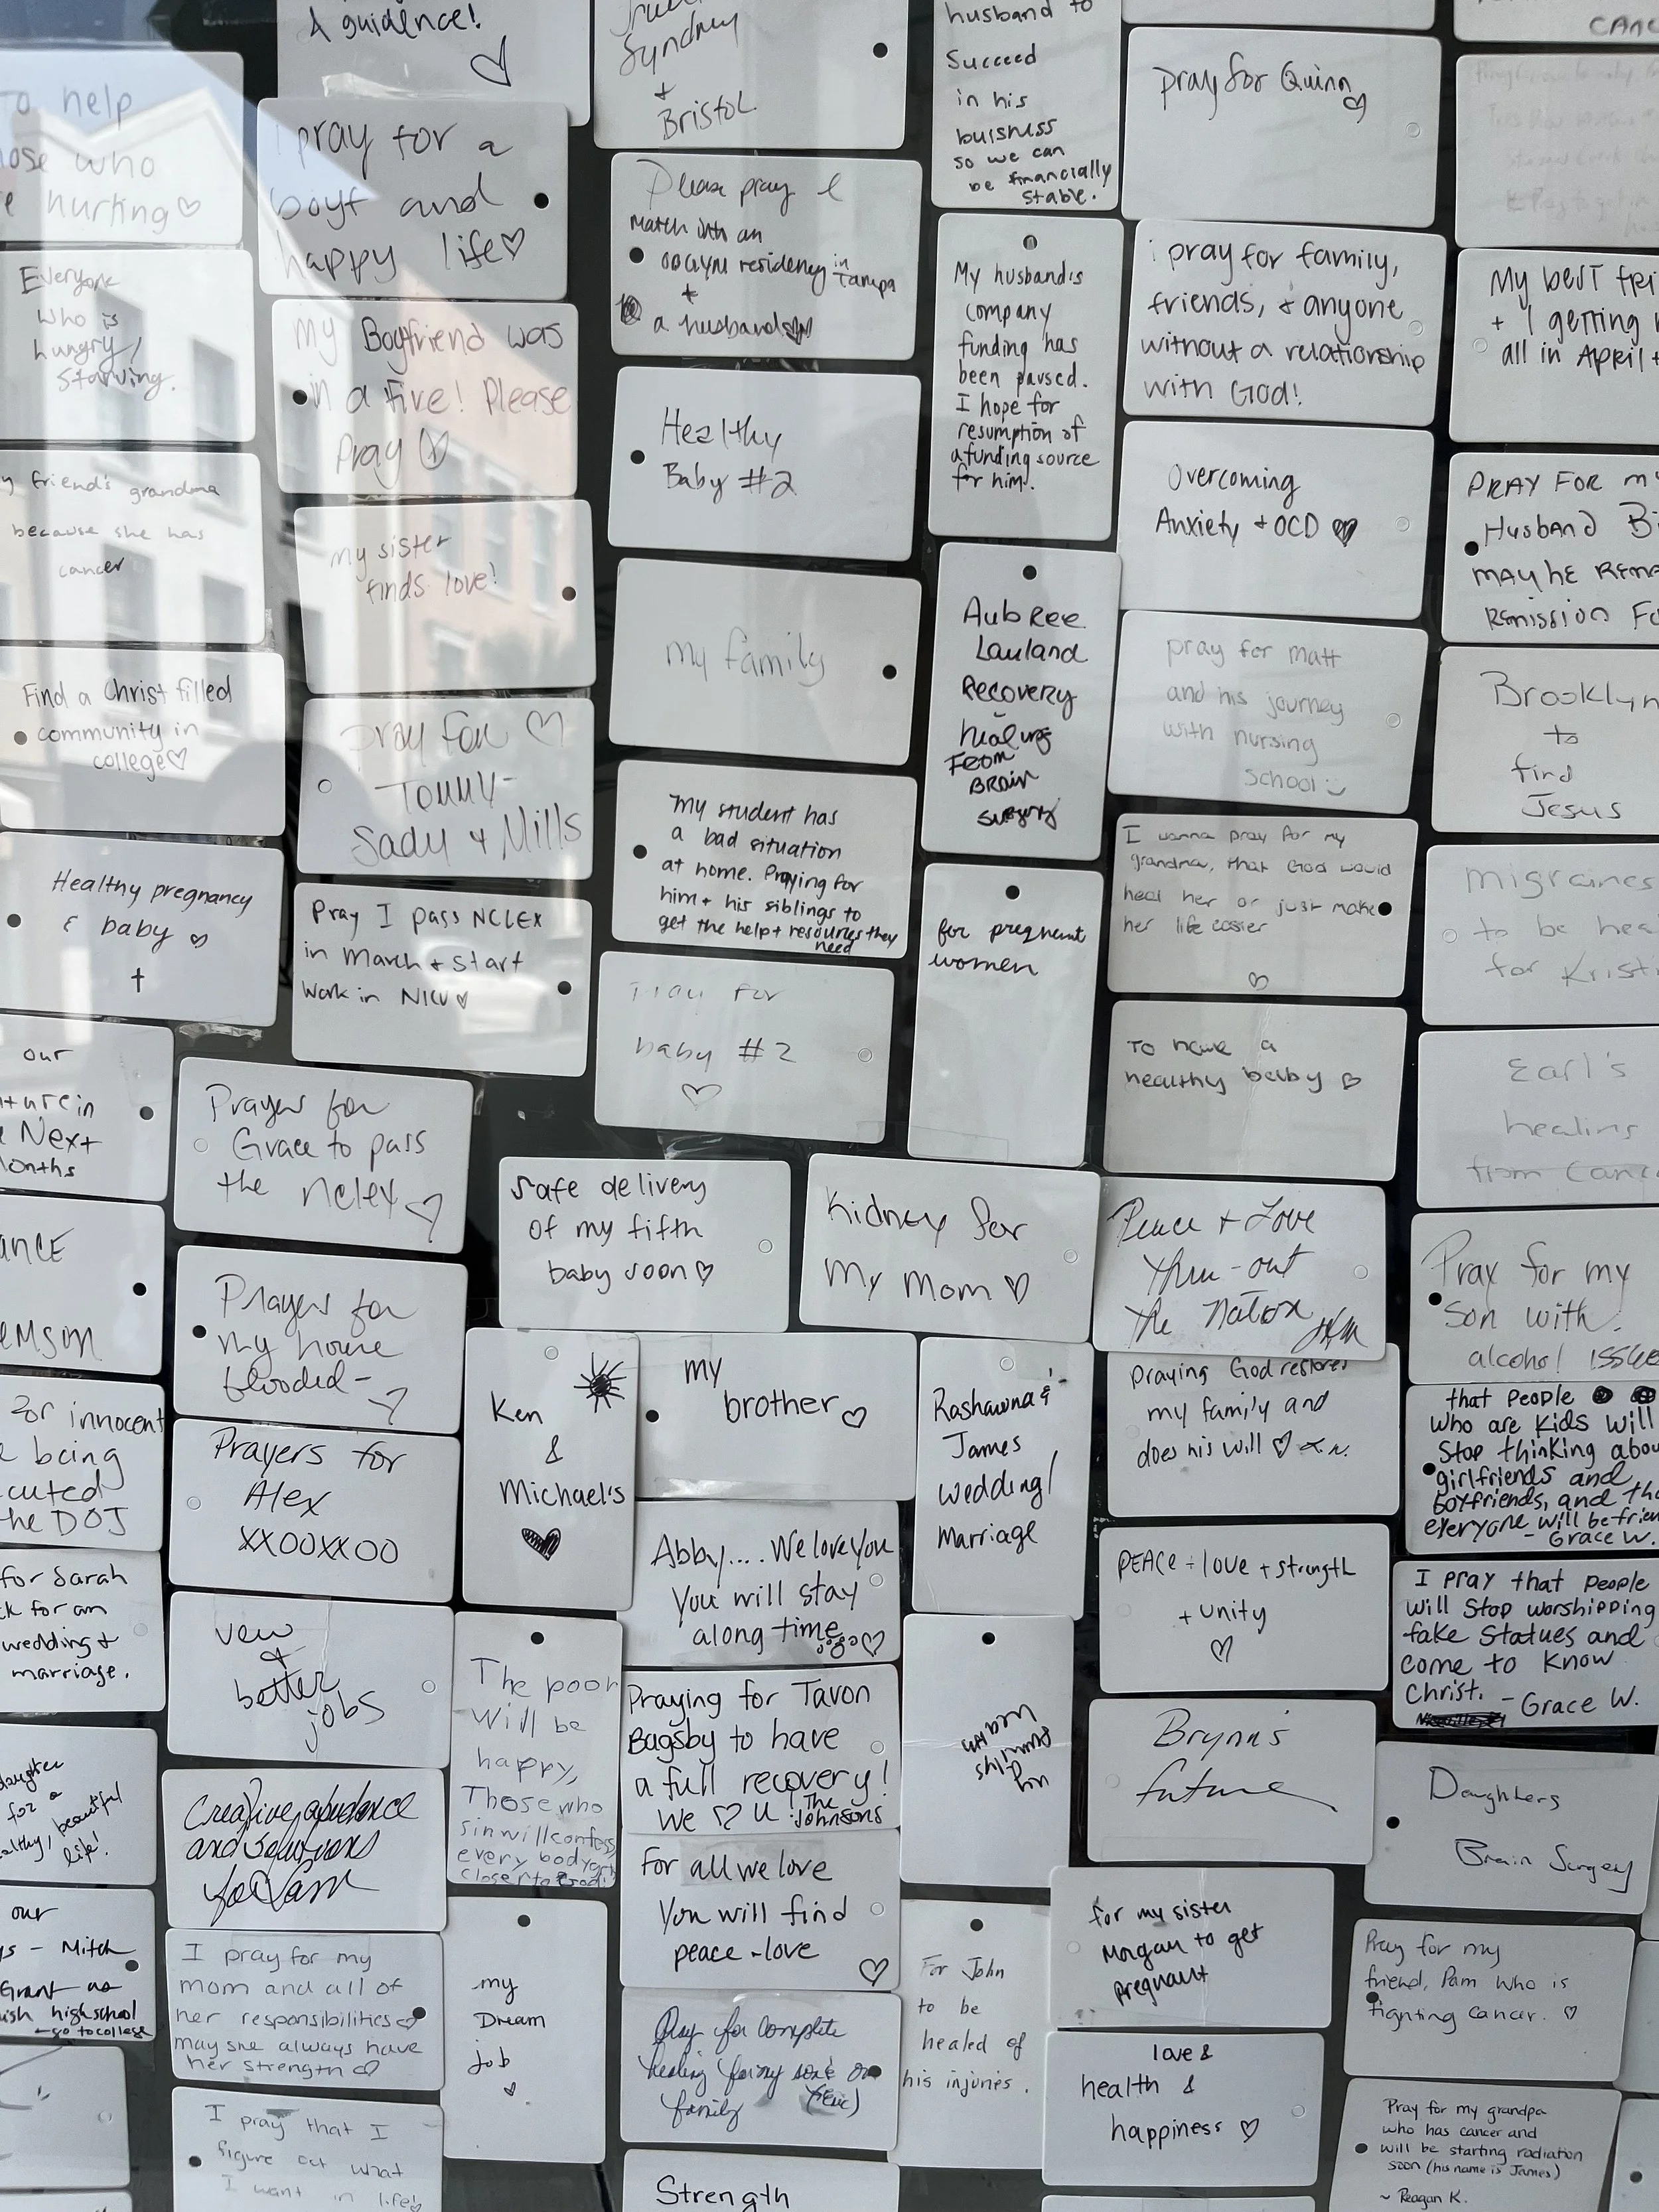 & guidence!
Syndney
+
Bristol
husband to
Succeed
in his
buisness
so we can
be financially
stable.
pray for Quinn
CANC
To help
ose who
e hurting
I pray for a
boyf and
happy life
Please pray I
match into an
obgyn residency in Tampa
+
a husband
My husband's
company
funding has
been paused.
I hope for
resumption of
a funding source
for him.
i pray for family,
friends, + anyone
without a relationship
with God!
My best fri
+ I getting
all in April +
Everyone
who is
hungry/
starving.
My Boyfriend was
in a Fire! Please
Pray
Healthy
Baby #2
Overcoming
Anxiety + OCD
PRAY FOR my
Husband Bi
may he REMA
REMISSION FO
y friend's grandma
because she has
cancer
my sister
finds love!
my family
AubRee
Lauland
Recovery
healing
From
BRAIN
surgery
pray for matt
and his journey
with nursing
school
Brooklyn
to
find
Jesus
Find a Christ filled
community in
college
Pray For
Tommy-
Sady + Mills
My student has
a bad situation
at home. Praying for
him + his siblings to
get the help + resources they
need
I wanna pray for my
grandma, that God would
heal her or just make
her life easier
migraines
to be hea
for Kristi
Healthy pregnancy
& baby
Pray I pass NCLEX
in march + start
work in NICU
for pregnant
women
Pray for
baby #2
To have a
healthy baby
Earl's
healing
from Canc
our
ture in
e Next
Months
Prayers for
Grace to pass
the nclex
safe delivery
of my fifth
baby soon
Kidney for
My Mom
Peace + Love
thru-out
the Nation
Pray for my
son with
alcohol issue
ANCE
EMSON
Prayers for
my home
flooded-
Ken
&
Michael's
my
brother
Rashawna &
James
wedding/
marriage
Praying God restores
my family and
does his will
that people
who are kids will
stop thinking abou
girlfriends and
boyfriends, and tha
everyone will be frien
- Grace W.
for innocent
e being
cuted
he DOJ
Prayers for
Alex
XXOOXXOO
Abby.... We love You
You will stay
along time
PEACE + love + strength
+ unity
I pray that people
will stop worshipping
fake statues and
come to know
Christ. - Grace W.
for Sarah
ck for an
wedding +
marriage.
new
+
better
jobs
The poor
will be
happy,
Those who
sin will confess,
every body
closer to God!
Praying for Tavon
Bagsby to have
a full recovery!
We ♡ U The
Johnsons
my
family's
health
Brynn's
future
Daughters
Brain Surgery
daughter
for a
althy, beautiful
life!
Creative abundance
and solutions
For all we love
You will find
peace - love
for my sister
Morgan to get
pregnant
our
ys - Mitch
Grant as
ish highschool
go to college
I pray for my
mom and all of
her responsibilities
may she always have
her strength
my
Dream
job
Pray for complete
healing for my son &
family
For John
to be
healed of
his injuries.
love &
health &
happiness
Pray for my
friend, Pam who is
fighting cancer.
I pray that I
figure out what
I want in life!
Strength
Pray for my grandpa
who has cancer and
will be starting radiation
soon (his name is James)
~ Reagan K.